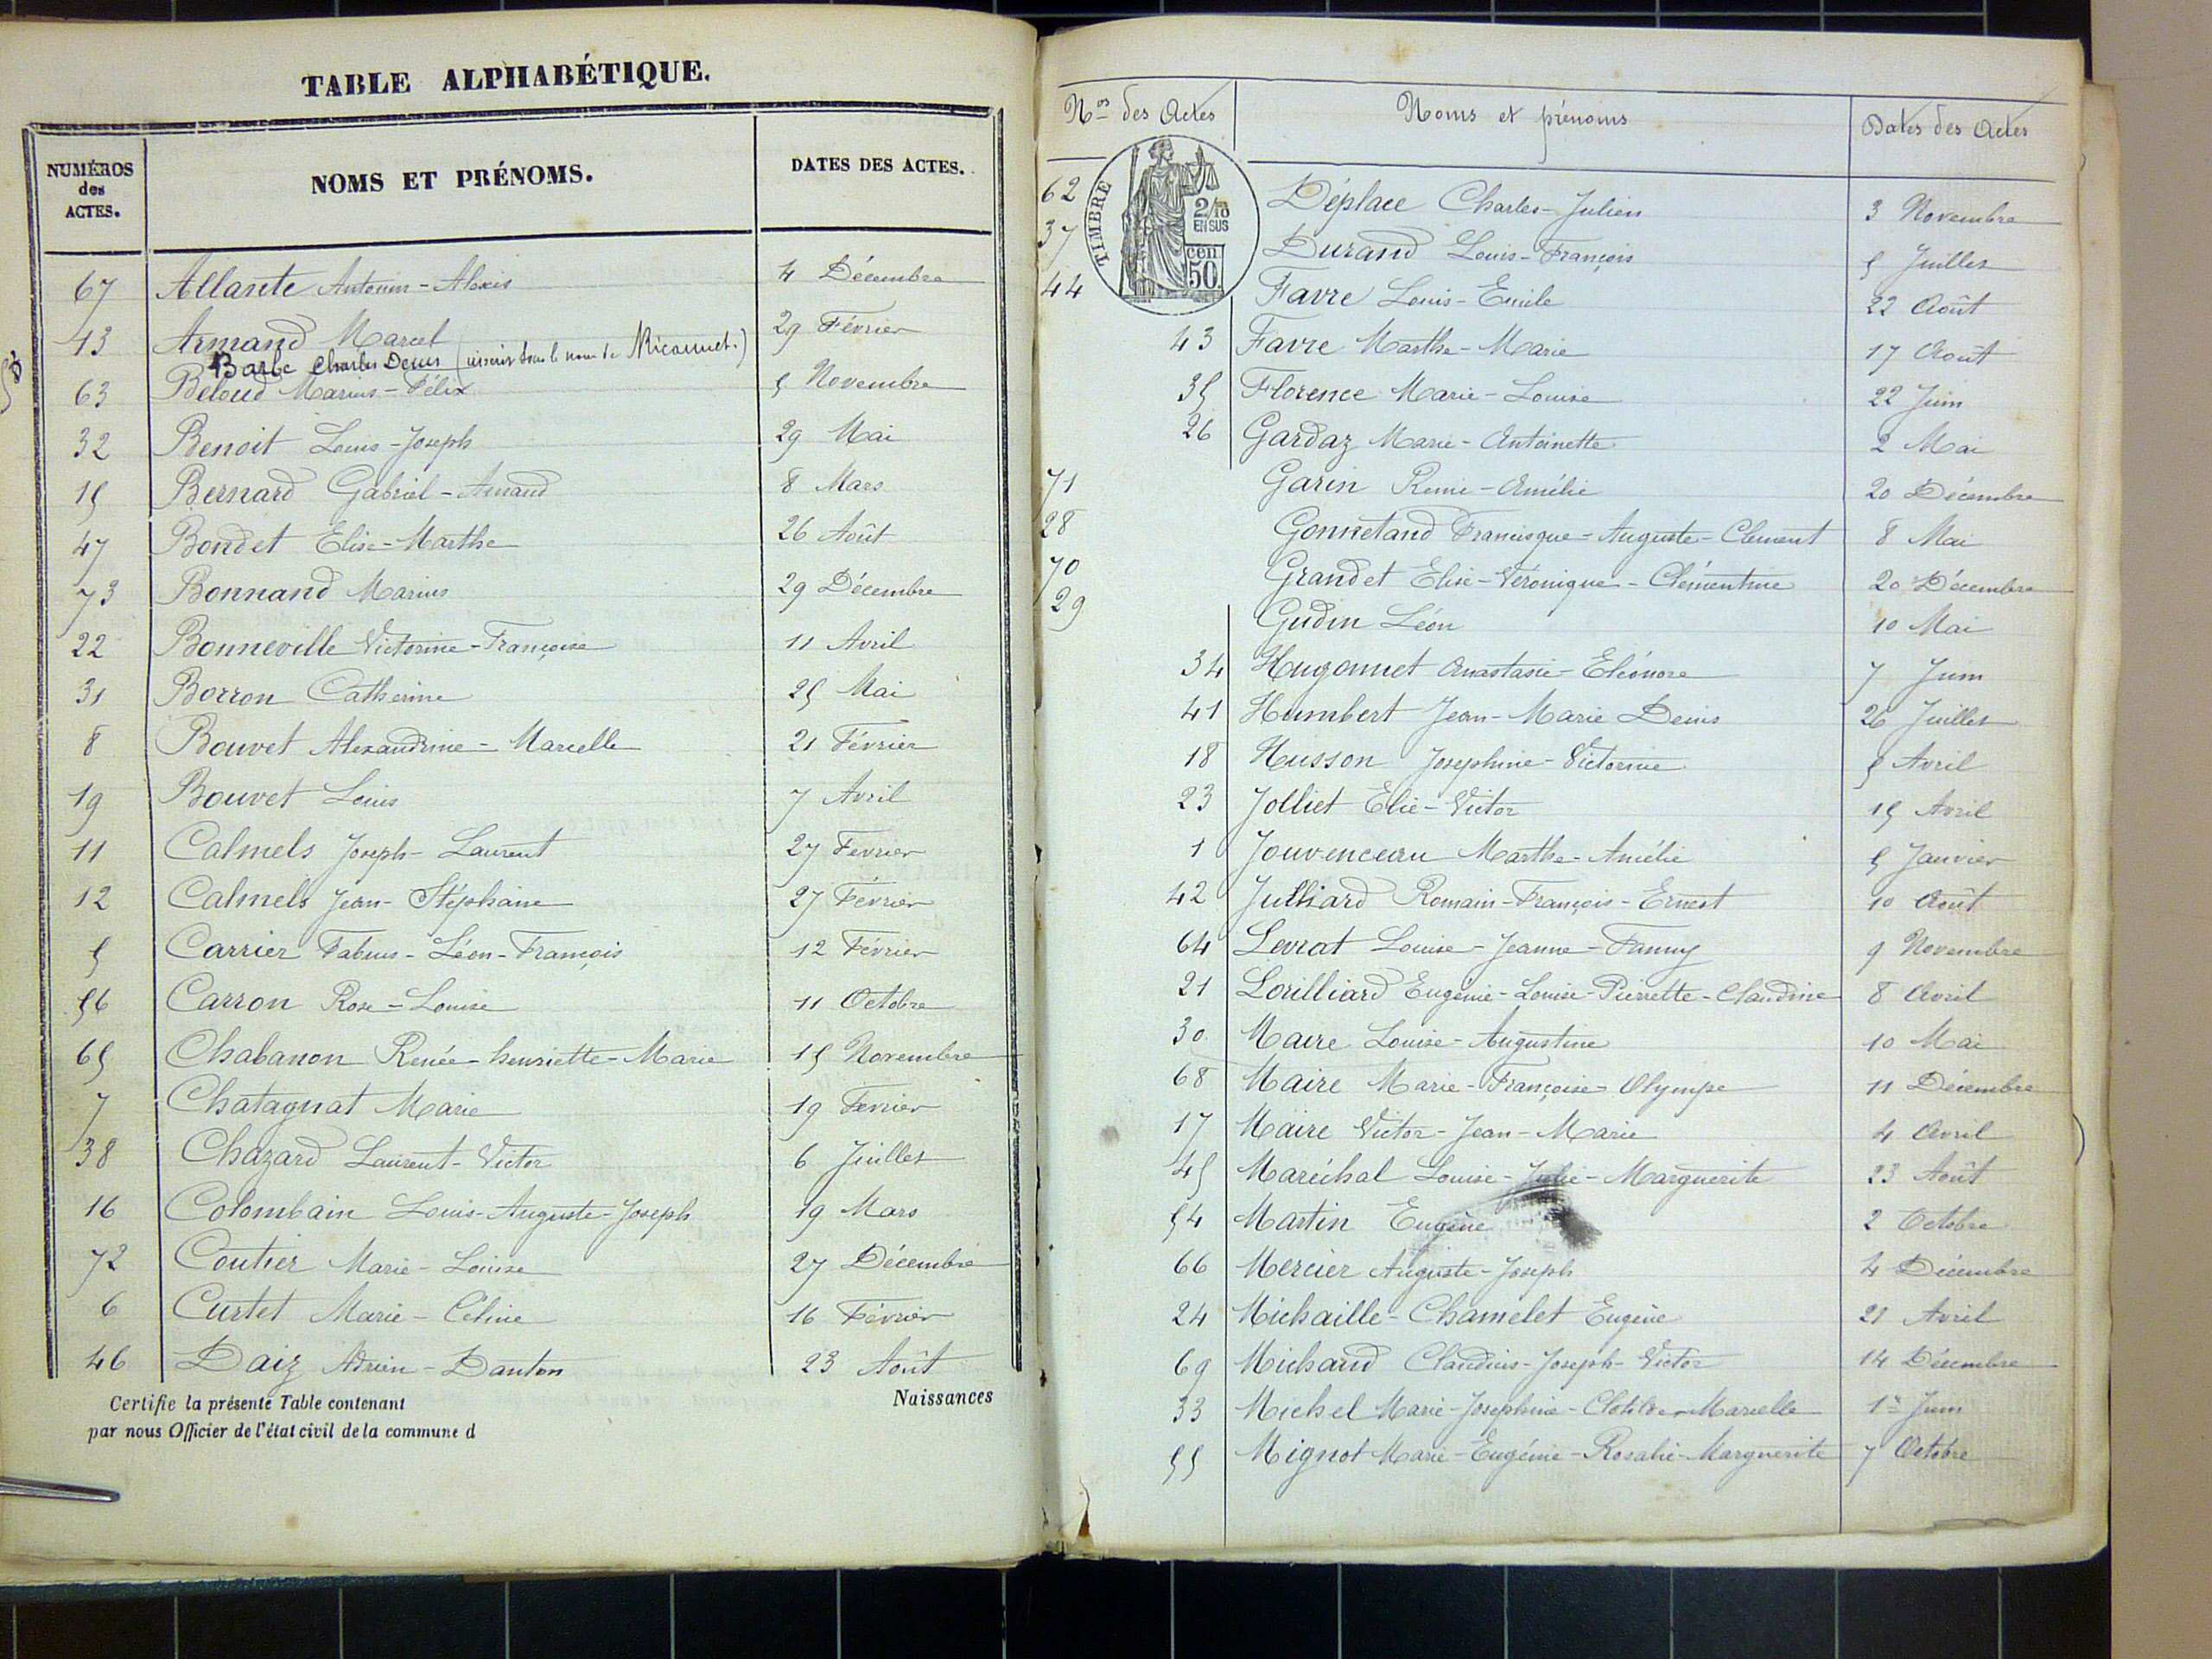 TABLE ALPHABÉTIQUE.
NUMÉROS des ACTES. NOMS ET PRÉNOMS. DATES DES ACTES.
67 Allante Antonin-Alexis 4 Décembre
13 Armand Marcel 29 Février
Barbe Charles Denis (inscrit sous le nom de Niconnet.)
63 Beloud Marius-Félix 5 Novembre
32 Benoit Louis-Joseph 29 Mai
15 Bernard Gabriel-Arnaud 8 Mars
47 Bondet Elise-Marthe 26 Août
73 Bonnand Marius 29 Décembre
22 Bonneville Victorine-Françoise 11 Avril
31 Borron Catherine 25 Mai
8 Bouvet Alexandrine-Marcelle 21 Février
19 Bouvet Louis 7 Avril
11 Calmels Joseph-Laurent 27 Février
12 Calmels Jean-Stéphane 27 Février
5 Carrier Fabius-Léon-François 12 Février
56 Carron Rose-Louise 11 Octobre
65 Chabanon Renée-henriette-Marie 15 Novembre
7 Chatagnat Marie 19 Fevrier
38 Chazard Laurent-Victor 6 Juillet
16 Colombain Louis-Auguste-Joseph 19 Mars
72 Coutier Marie-Louise 27 Décembre
6 Curtet Marie-Céline 16 Février
46 Daiz Adrien-Danton 23 Août
Certifie la présente Table contenant Naissances
par nous Officier de l'état civil de la commune d
Nos des Actes Noms et prénoms Dates des Actes
TIMBRE 2/10 EN SUS 50 cen
62 Déplace Charles-Julien 3 Novembre
37 Durand Louis-François 5 Juillet
44 Favre Louis-Emile 22 Août
43 Favre Marthe-Marie 17 Août
35 Florence Marie-Louise 22 Juin
26 Gardaz Marie-Antoinette 2 Mai
71 Garin Remi-Amélie 20 Décembre
28 Gonnetand Francisque-Auguste-Clement 8 Mai
70 Grandet Elise-Véronique-Clémentine 20 Décembre
29 Gudin Léon 10 Mai
34 Hugonnet Anastasie-Eléonore 7 Juin
41 Humbert Jean-Marie Denis 26 Juillet
18 Husson Josephine-Victorine 5 Avril
23 Jolliet Elie-Victor 15 Avril
1 Jouvenceau Marthe-Amélie 5 Janvier
42 Julliard Romain-François-Ernest 10 Août
64 Levrat Louise-Jeanne-Fanny 9 Novembre
21 Lorilliard Eugénie-Louise-Pierrette-Claudine 8 Avril
30 Maire Louise-Augustine 10 Mai
68 Maire Marie-Françoise-Olympe 11 Décembre
17 Maire Victor-Jean-Marie 4 Avril
45 Maréchal Louise-Julie-Marguerite 23 Août
54 Martin Eugène 2 Octobre
66 Mercier Auguste-Joseph 4 Décembre
24 Michaille-Chamelet Eugène 21 Avril
69 Michaud Claudius-Joseph-Victor 14 Décembre
33 Michel Marie-Josephine-Clotilde-Marcelle 1er Juin
55 Mignot Marie-Eugénie-Rosalie-Marguerite 7 Octobre